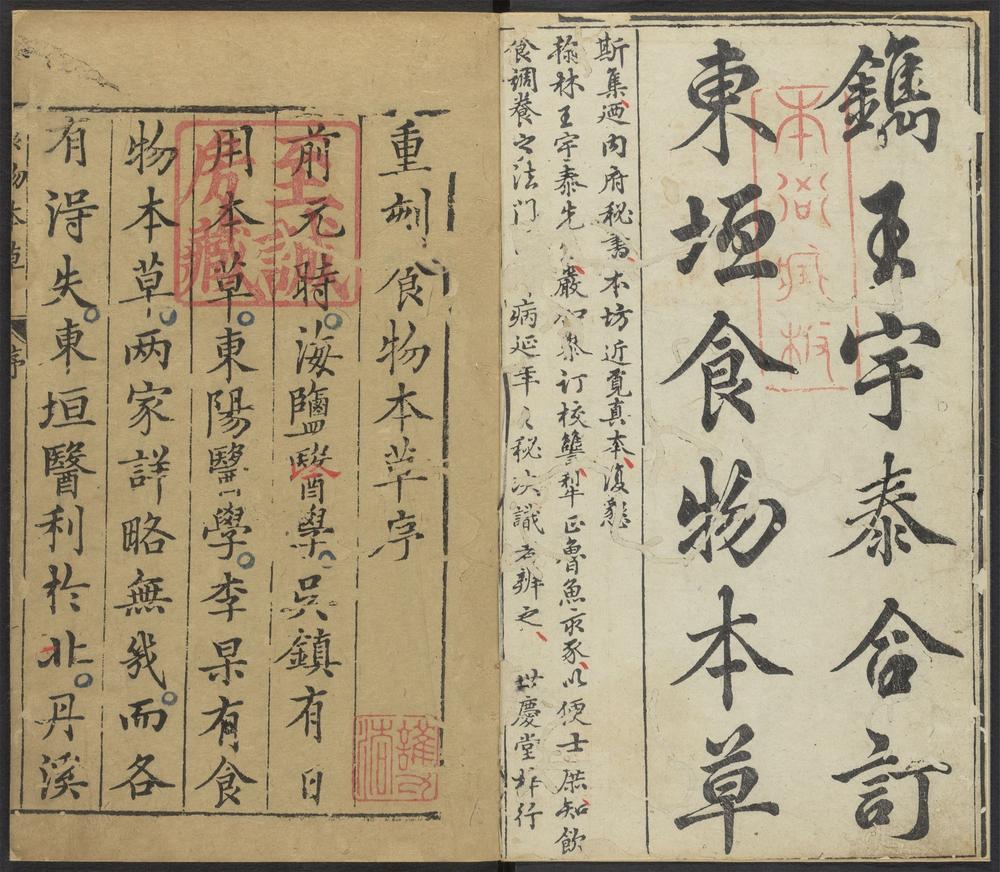 鐫王宇泰合訂
東垣食物本草
斯集迺內府秘書本坊近覓真本復懇
翰林王宇泰先 嚴加 訂校讐犁正魯魚亥豕以便士庶知飲
食調養之法門 病延年 秘決識者辨之 世慶堂梓行
本衙藏板
重刻食物本草序
前元時海鹽醫學吳鎮有日
用本草東陽醫學李杲有食
物本草兩家詳略無幾而各
有得失東垣醫利於北丹溪
食物本草 序